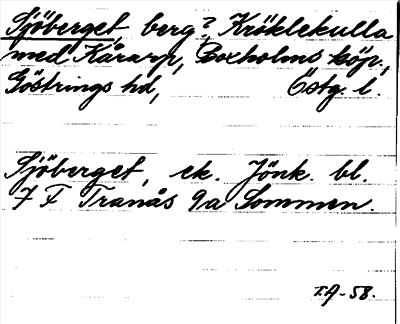 Sjöberget, berg? Kröklekulla
med Kårarp, Boxholms köp.,
Göstrings hd, Östg. l.
Sjöberget, ek. Jönk. bl.
7 F Tranås 9a Sommen.
T.A-58.